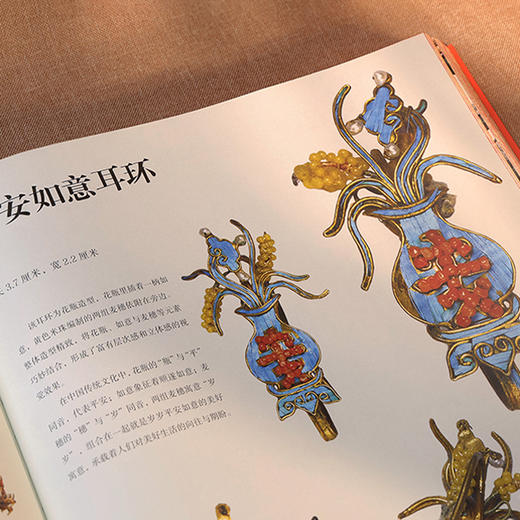 安如意耳环
3.7厘米，宽2.2厘米
该耳环为花瓶造型，花瓶里插着一柄如
意，黄色米珠编制的两组麦穗依附在旁边。
整体造型精致，将花瓶、如意与麦穗等元素
巧妙结合，形成了富有层次感和立体感的视
觉效果。
在中国传统文化中，花瓶的“瓶”与“平”
同音，代表平安；如意象征着顺遂如意，麦
穗的“穗”与“岁”同音，两组麦穗寓意“岁
岁”，组合在一起就是岁岁平安如意的美好
寓意，承载着人们对美好生活的向往与期盼。
安
安